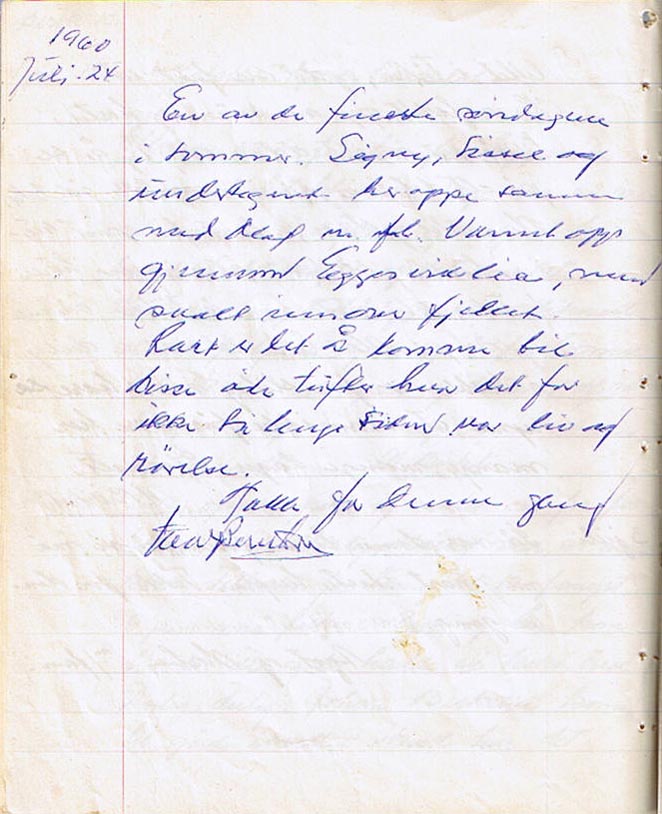 1960
Juli. 24
En av de fineste søndagene
i sommer. Signy, Sissel og
undertegnede her oppe sammen
med Olaf m. fl. Vannet opp
gjennom Eggesviklia, men
svalt innover fjellet.
Rart er det å komme til
disse øde tufter hvor det for
ikke så lenge siden var liv og
rörelse.
Takk for denne gang